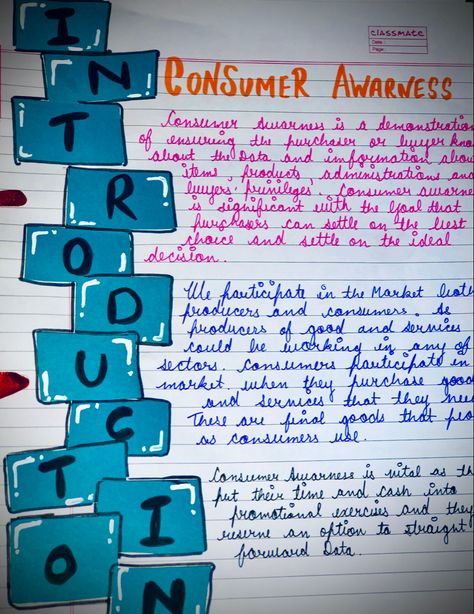 INTRODUCTION
classmate
Date :
Page :
CONSUMER AWARNESS
Consumer Awarness is a demonstration
of ensuring the purchaser or buyer kno
about the Data and information abou
items, products, administrations and
buyers' privileges. Consumer awarne
is significant with the Goal that
purchasers can settle on the best
choice and settle on the ideal
decision.
We participate in the Market both
producers and consumers. As
producers of good and services
could be working in any of
sectors. Consumers participate in
market when they purchase goo
and services that they nee
These are final goods that peo
as consumers use.
Consumer Awarness is vital as th
put their time and cash into
promotional exercises and they
reserve an option to straight
forward Data.